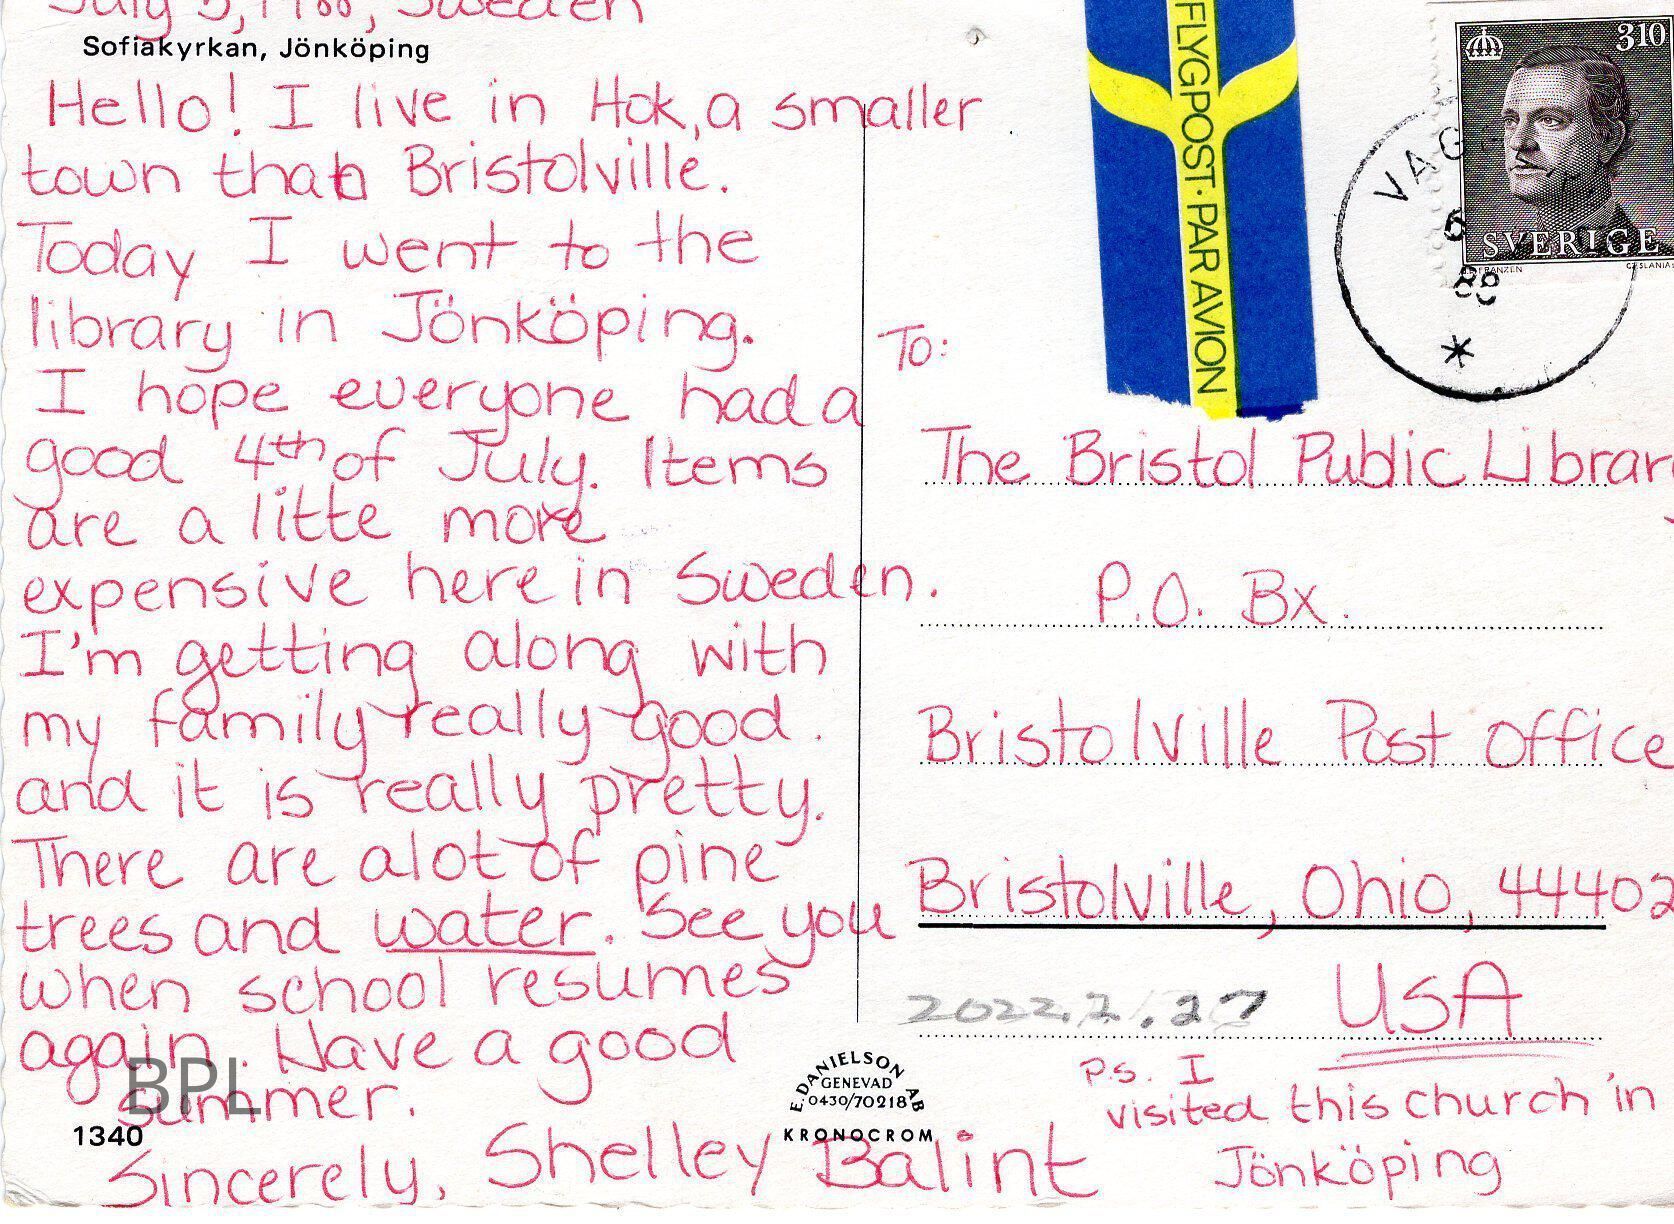 July 5, 1988, Sweden
Sofiakyrkan, Jönköping
Hello! I live in Hok, a smaller
town than Bristolville.
Today I went to the
library in Jönköping.
I hope everyone had a
good 4th of July. Items
are a litte more
expensive here in Sweden.
I'm getting along with
my family really good.
and it is really pretty.
There are alot of pine
trees and water. See you
when school resumes
again. Have a good
summer.
Sincerely, Shelley Balint
BPL
1340
FLYGPOST·PAR AVION
310
SVERIGE
FRANZEN
CZ SLANIA
VAG
6
88
*
To:
The Bristol Public Library
P.O. Bx.
Bristolville Post Office
Bristolville, Ohio, 44402
USA
2022.2.27
P.S. I
visited this church in
Jönköping
E. DANIELSON AB
GENEVAD
0430/70218
KRONOCROM